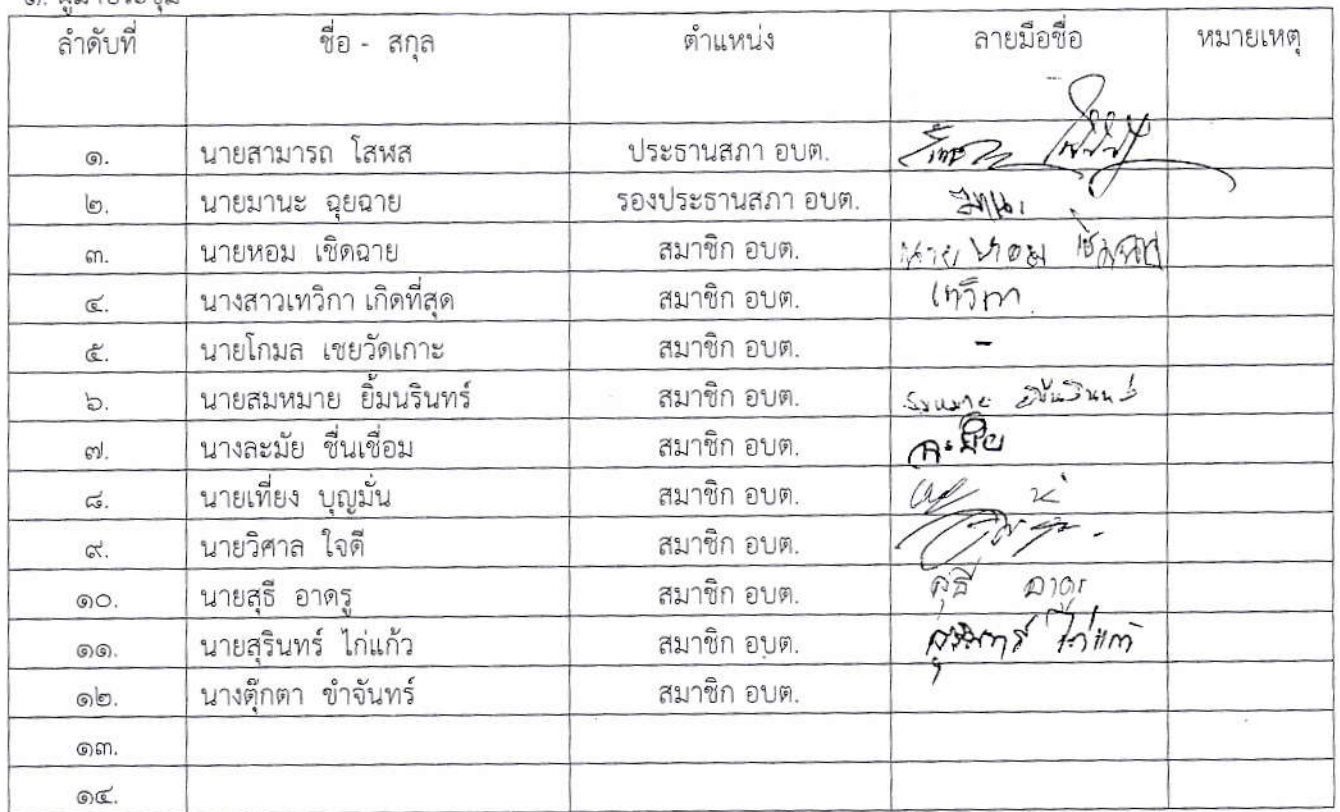 ๑. ผู้มาประชุม
ลำดับที่ ชื่อ - สกุล ตำแหน่ง ลายมือชื่อ หมายเหตุ
๑. นายสามารถ โสฬส ประธานสภา อบต.
๒. นายมานะ ฉุยฉาย รองประธานสภา อบต. มานะ
๓. นายหอม เชิดฉาย สมาชิก อบต. นาย หอม เชิดฉาย
๔. นางสาวเทวิกา เกิดที่สุด สมาชิก อบต. เทวิกา
๕. นายโกมล เชยวัดเกาะ สมาชิก อบต. -
๖. นายสมหมาย ยิ้มนรินทร์ สมาชิก อบต. สมหมาย ยิ้มนรินทร์
๗. นางละมัย ชื่นเชื่อม สมาชิก อบต. ละมัย
๘. นายเที่ยง บุญมั่น สมาชิก อบต.
๙. นายวิศาล ใจดี สมาชิก อบต.
๑๐. นายสุธี อาดรู สมาชิก อบต. สุธี อาดรู
๑๑. นายสุรินทร์ ไก่แก้ว สมาชิก อบต. สุรินทร์ ไก่แก้ว
๑๒. นางตุ๊กตา ขำจันทร์ สมาชิก อบต.
๑๓.
๑๔.